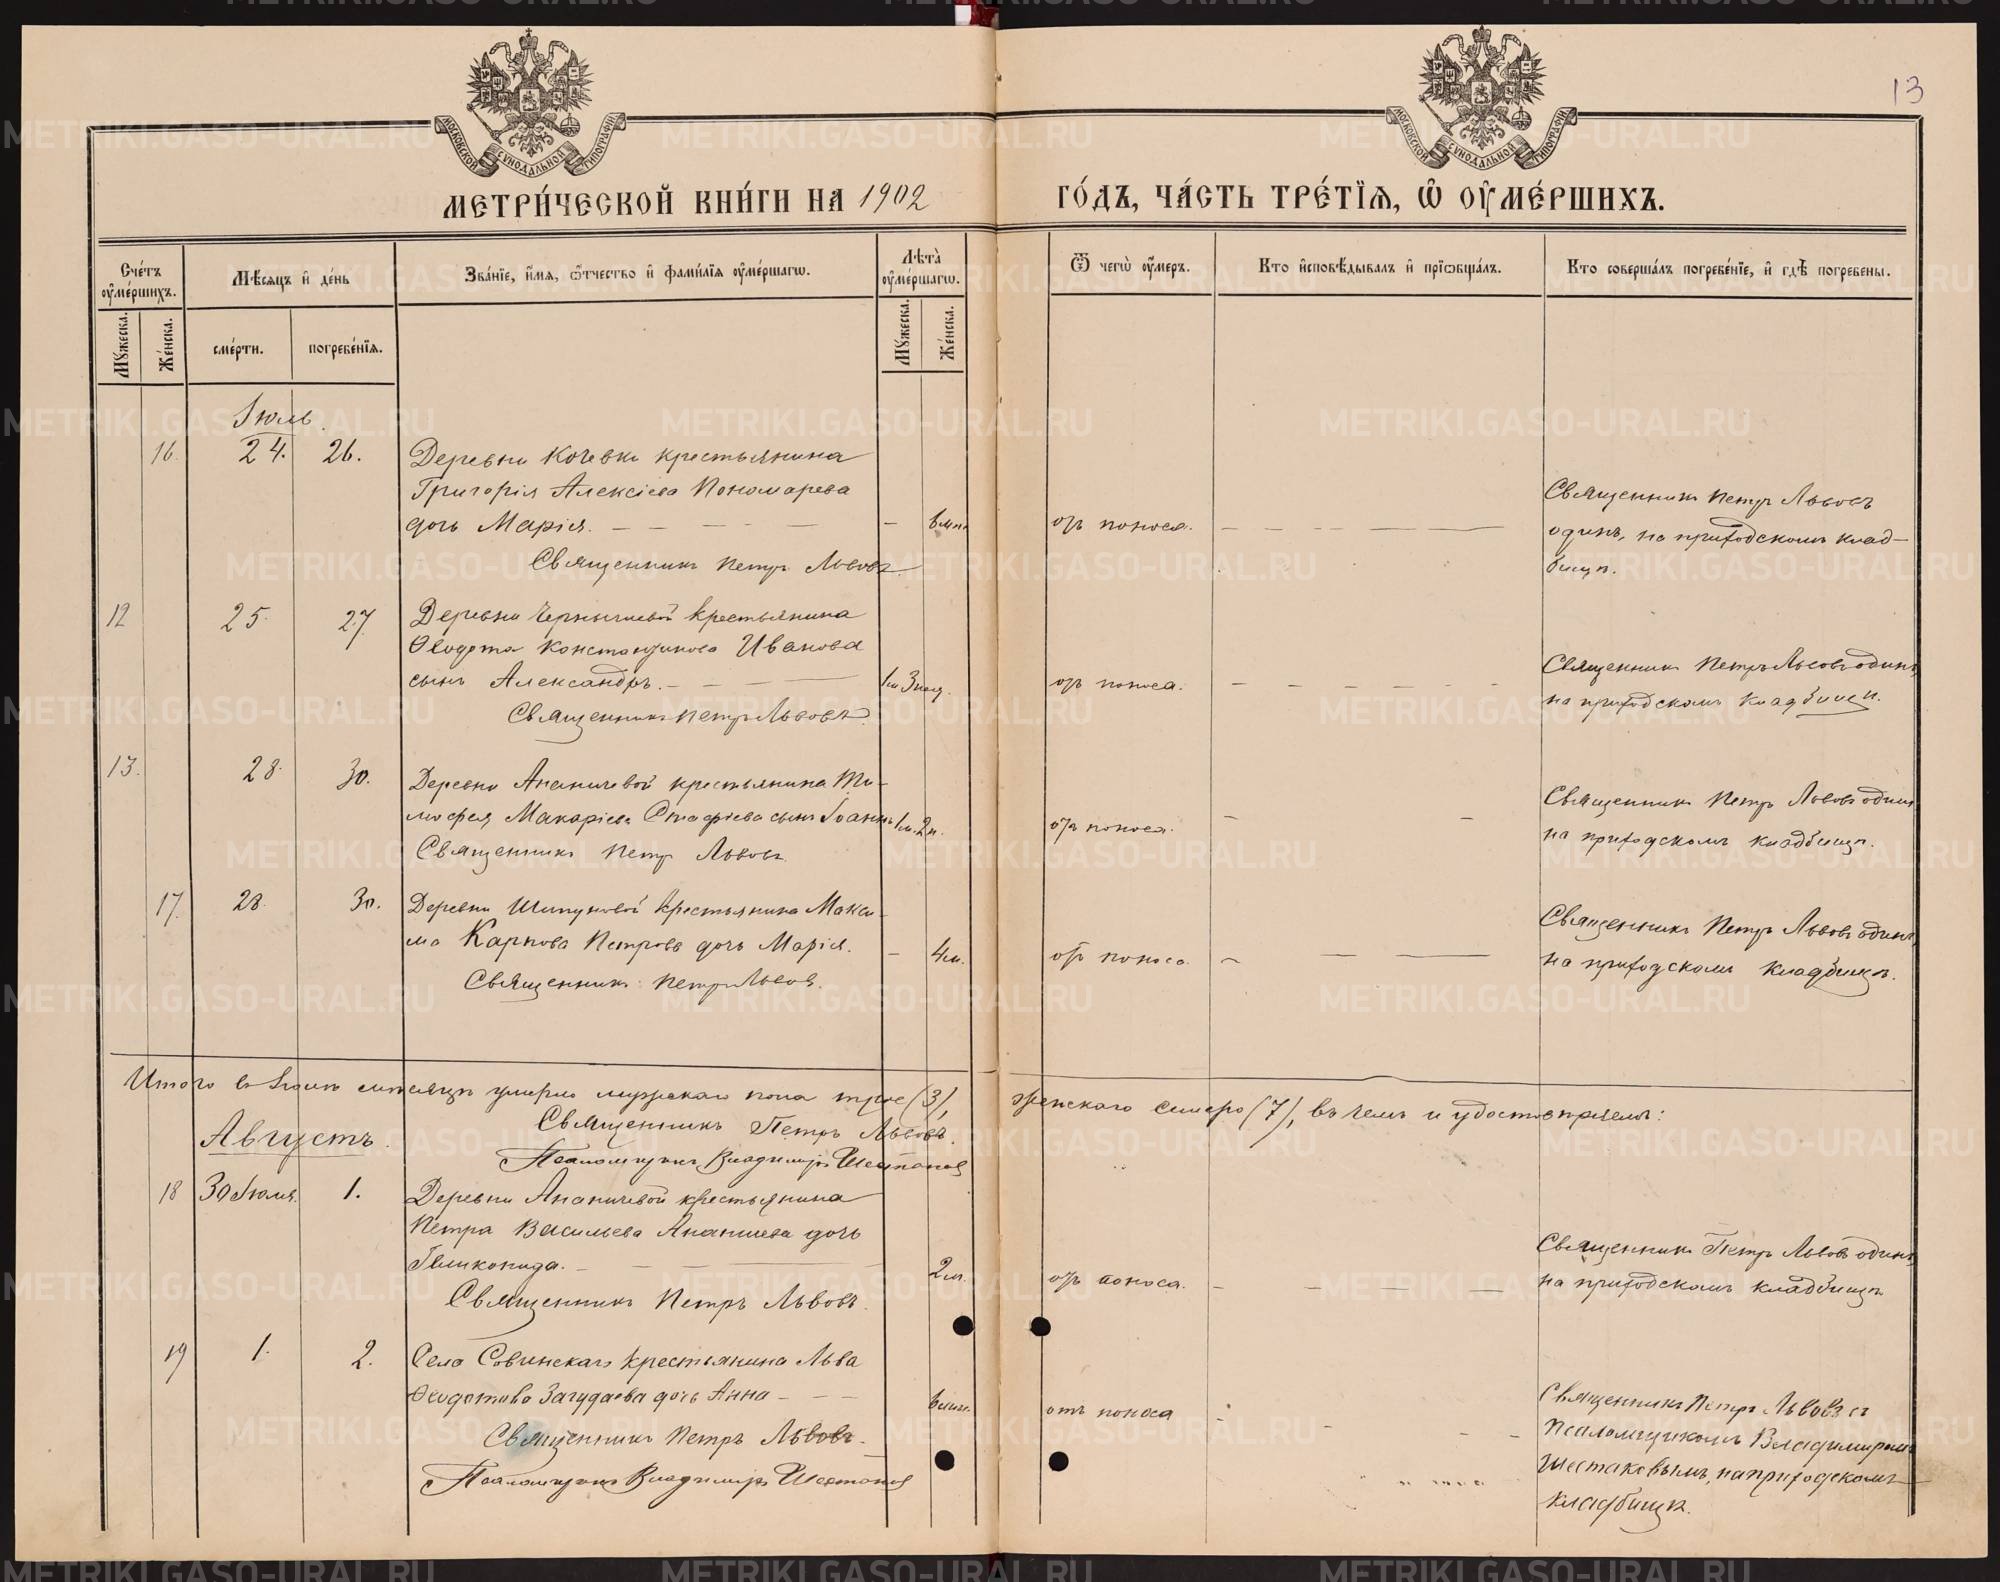 13
МОСКОВСКОЙ СѴНОДАЛЬНОЙ ТИПОГРАФІИ
МОСКОВСКОЙ СѴНОДАЛЬНОЙ ТИПОГРАФІИ
МЕТРИ́ЧЕСКОЙ КНИ́ГИ НА 1902 ГО́ДЪ, ЧА́СТЬ ТРЕ́ТЇѦ, Ѡ҆ ОУ҆МЕ́РШИХЪ.
Сче́тъ оу҆ме́ршихъ.
Мꙋ́жеска.
Же́нска.
Мѣ́сѧцъ и҆ де́нь
сме́рти.
погребе́нїѧ.
Зва́нїе, и҆́мѧ, ѻ҆́тчество и҆ фами́лїѧ оу҆ме́ршагѡ.
Лѣ́та оу҆ме́ршагѡ.
Мꙋ́жеска.
Же́нска.
Ѿ чегѡ̀ оу҆́меръ.
Кто̀ и҆сповѣ́дывалъ и҆ прїѡбща́лъ.
Кто̀ соверша́лъ погребе́нїе, и҆ гдѣ̀ погребены̀.
Іюль.
16. 24. 26. Деревни Кочевки крестьянина
Григорія Алексіева Пономарева
дочь Марія. — — — — — от поноса. — — —
Священникъ Петръ Львовъ.
Священникъ Петръ Львовъ
одинъ, на приходскомъ клад-
бищѣ.
12 25. 27. Деревни крестьянина
Ѳеодота Константинова Иванова
сынъ Александръ. — — — 1 3 отъ поноса. — — —
Священникъ Петръ Львовъ.
Священникъ Петръ Львовъ одинъ,
на приходскомъ кладбищѣ.
13. 28. 30. Деревни Ананичевой крестьянина Ти-
мофея Макаріева сынъ Іоаннъ 1м. 2н. отъ поноса. — —
Священникъ Петръ Львовъ
Священникъ Петръ Львовъ одинъ
на приходскомъ кладбищѣ.
17. 28. 30. Деревни Шипуновой крестьянина Макси-
ма Карпова Петрова дочь Марія. — 4м. отъ поноса — — —
Священникъ Петръ Львовъ.
Священникъ Петръ Львовъ одинъ,
на приходскомъ кладбищѣ.
Итого въ Іюлѣ мѣсяцѣ умерло мужскаго пола трое (3), женскаго семеро (7), въ чемъ и удостовѣряемъ:
Священникъ Петръ Львовъ.
Псаломщикъ Владимиръ Шестаковъ
Августъ.
18 30 Іюля. 1. Деревни Ананичевой крестьянина
Петра Васильева Ананьева дочь
Гликонида. — — — 2м. отъ поноса. — — —
Священникъ Петръ Львовъ.
Священникъ Петръ Львовъ одинъ,
на приходскомъ кладбищѣ
19 1. 2. Села Совинскаго крестьянина Льва
Ѳеодотова Загудаева дочь Анна — — — отъ поноса — — —
Священникъ Петръ Львовъ.
Псаломщикъ Владимиръ Шестаковъ
Священникъ Петръ Львовъ съ
Псаломщикомъ Владимиромъ
Шестаковымъ, на приходскомъ
кладбищѣ.
METRIKI.GASO-URAL.RU